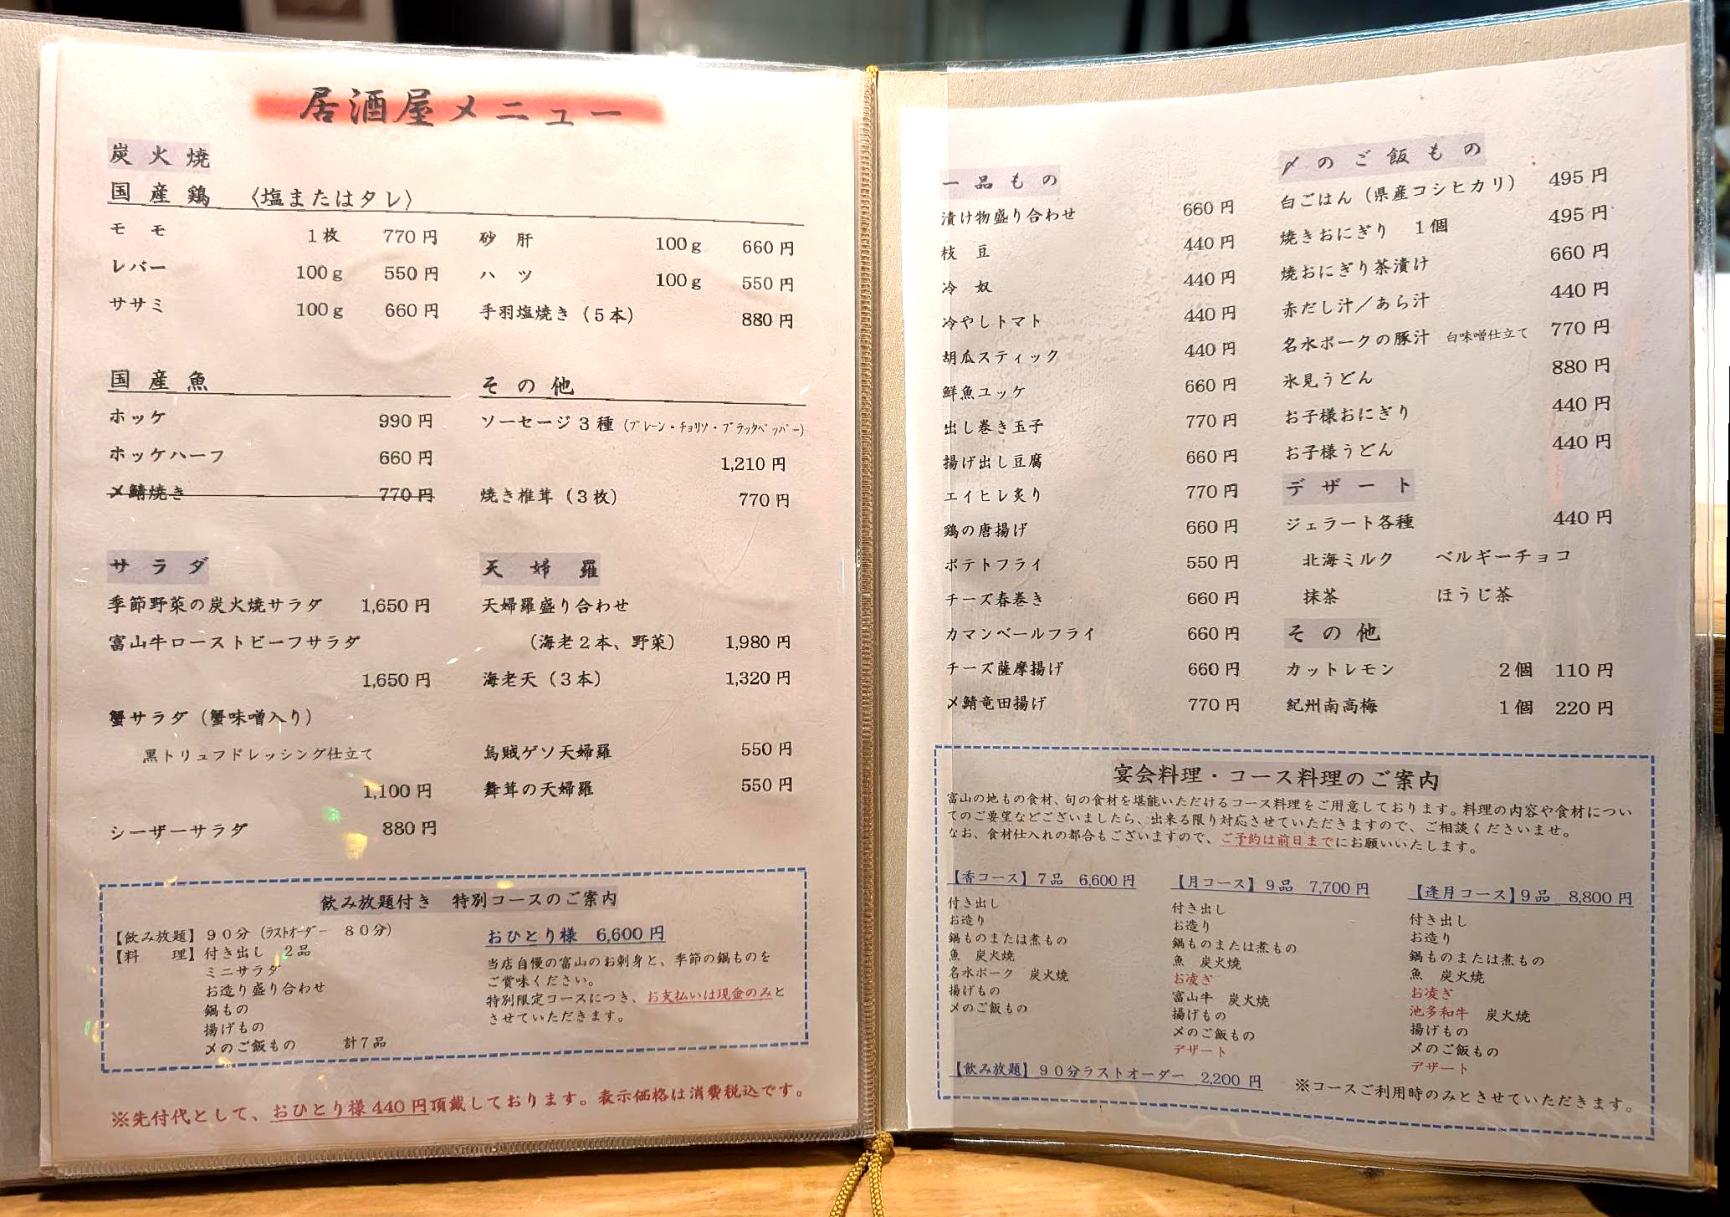 居酒屋メニュー
炭火焼
国産鶏 〈塩またはタレ〉
モモ 1枚 770円
レバー 100g 550円
ササミ 100g 660円
砂肝 100g 660円
ハツ 100g 550円
手羽塩焼き(5本) 880円
国産魚
ホッケ 990円
ホッケハーフ 660円
〆鯖焼き 770円
その他
ソーセージ3種(プレーン・チョリソ・ブラックペッパー)
1,210円
焼き椎茸(3枚) 770円
サラダ
季節野菜の炭火焼サラダ 1,650円
富山牛ローストビーフサラダ
1,650円
蟹サラダ(蟹味噌入り)
黒トリュフドレッシング仕立て
1,100円
シーザーサラダ 880円
天婦羅
天婦羅盛り合わせ
(海老2本、野菜) 1,980円
海老天(3本) 1,320円
烏賊ゲソ天婦羅 550円
舞茸の天婦羅 550円
飲み放題付き 特別コースのご案内
【飲み放題】90分(ラストオーダー 80分)
【料 理】付き出し 2品
ミニサラダ
お造り盛り合わせ
鍋もの
揚げもの
〆のご飯もの 計7品
おひとり様 6,600円
当店自慢の富山のお刺身と、季節の鍋ものを
ご賞味ください。
特別限定コースにつき、お支払いは現金のみと
させていただきます。
※先付代として、おひとり様440円頂戴しております。表示価格は消費税込です。
一品もの
漬け物盛り合わせ 660円
枝豆 440円
冷奴 440円
冷やしトマト 440円
胡瓜スティック 440円
鮮魚ユッケ 660円
出し巻き玉子 770円
揚げ出し豆腐 660円
エイヒレ炙り 770円
鶏の唐揚げ 660円
ポテトフライ 550円
チーズ春巻き 660円
カマンベールフライ 660円
チーズ薩摩揚げ 660円
〆鯖竜田揚げ 770円
〆のご飯もの
白ごはん(県産コシヒカリ) 495円
焼きおにぎり 1個 495円
焼おにぎり茶漬け 660円
赤だし汁/あら汁 440円
名水ポークの豚汁 白味噌仕立て 770円
氷見うどん 880円
お子様おにぎり 440円
お子様うどん 440円
デザート
ジェラート各種 440円
北海ミルク ベルギーチョコ
抹茶 ほうじ茶
その他
カットレモン 2個 110円
紀州南高梅 1個 220円
宴会料理・コース料理のご案内
富山の地もの食材、旬の食材を堪能いただけるコース料理をご用意しております。料理の内容や食材につい
てのご要望などございましたら、出来る限り対応させていただきますので、ご相談くださいませ。
なお、食材仕入れの都合もございますので、ご予約は前日までにお願いいたします。
【香コース】7品 6,600円
付き出し
お造り
鍋ものまたは煮もの
魚 炭火焼
名水ポーク 炭火焼
揚げもの
〆のご飯もの
【月コース】9品 7,700円
付き出し
お造り
鍋ものまたは煮もの
魚 炭火焼
お凌ぎ
富山牛 炭火焼
揚げもの
〆のご飯もの
デザート
【逢月コース】9品 8,800円
付き出し
お造り
鍋ものまたは煮もの
魚 炭火焼
お凌ぎ
池多和牛 炭火焼
揚げもの
〆のご飯もの
デザート
【飲み放題】90分ラストオーダー 2,200円
※コースご利用時のみとさせていただきます。